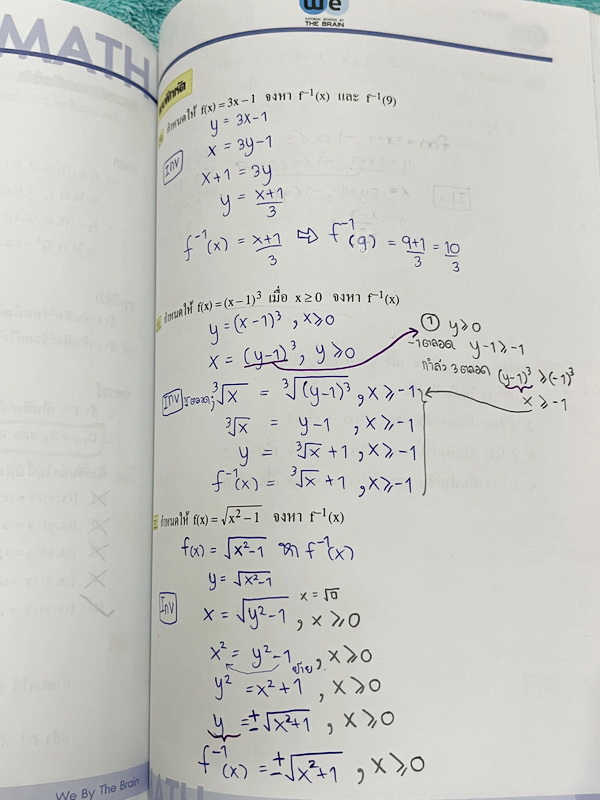 MATH
we
TUTORIAL SCHOOL BY
THE BRAIN
กำหนดให้ f(x) = 3x − 1 จงหา f⁻¹(x) และ f⁻¹(9)
y = 3x-1
Inv
x = 3y-1
x+1 = 3y
y = x+1/3
f⁻¹(x) = x+1/3 ⇨ f⁻¹(9) = 9+1/3 = 10/3
กำหนดให้ f(x) = (x − 1)³ เมื่อ x ≥ 0 จงหา f⁻¹(x)
y = (x-1)³ , x⩾0
x = (y-1)³ , y⩾0
① y⩾0
-1 ตลอด y-1 ⩾ -1
กำลัง 3 ตลอด (y-1)³ ⩾ (-1)³
x ⩾ -1
Inv
ตลอด; ³√x = ³√(y-1)³ , x⩾-1
³√x = y-1 , x⩾-1
y = ³√x +1 , x⩾-1
f⁻¹(x) = ³√x +1 , x⩾-1
กำหนดให้ f(x) = √x² − 1 จงหา f⁻¹(x)
f(x) = √x²-1 หา f⁻¹(x)
y = √x²-1
Inv
x = √y²-1 , x⩾0
x = √0
x² = y²-1 , x⩾0
ย้าย
y² = x²+1 , x⩾0
y = ±√x²+1 , x⩾0
f⁻¹(x) = ±√x²+1 , x⩾0
We By The Brain
MATH